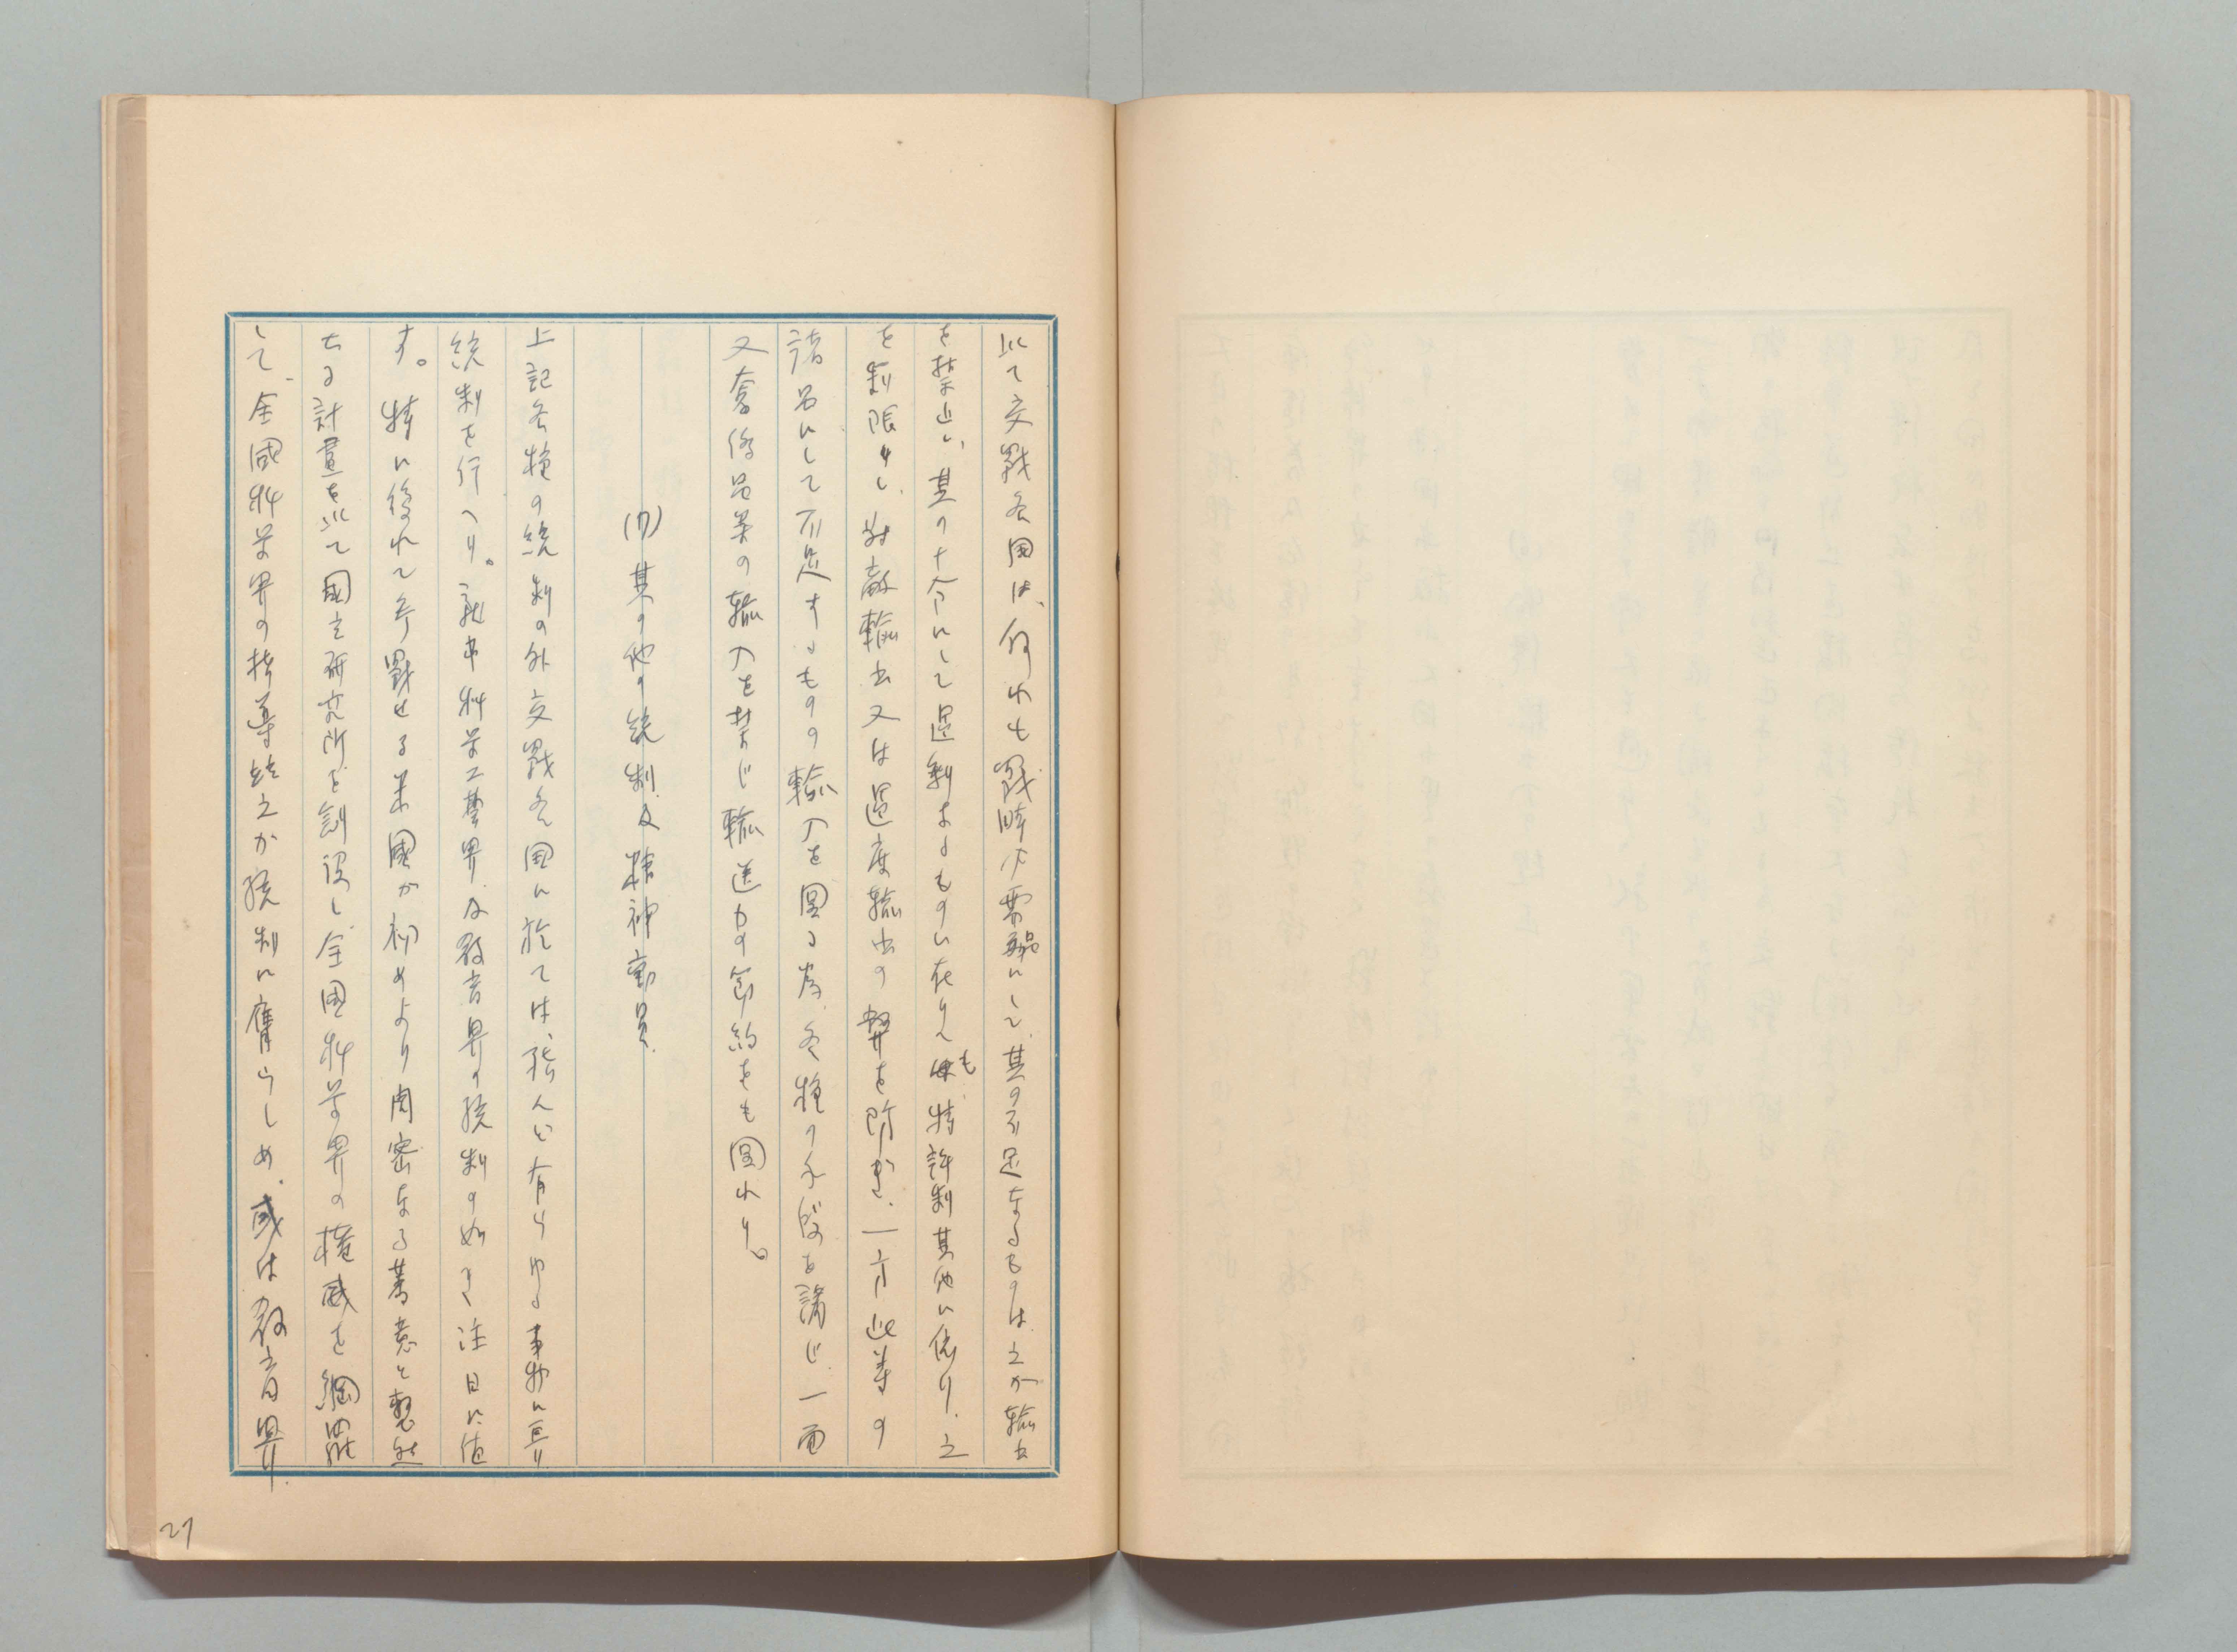 以て交戰各国は、何れも戰時必需品にして、其の不足なるものは之か輸出
を禁止し、其の十分にして過剰なるものに在りても特許制其他に依り、之
を制限し、対敵輸出又は過度輸出の弊を防き、一方此等の
諸品にして不足するものの輸入を図る為、各種の手段を講じ、一面
又奢侈品等の輸入を禁じ輸送力の節約をも図れり。
(7) 其の他の統制及精神動員
上記各種の統制の外交戰各国に於ては、殆んど有らゆる事物に亘り
統制を行へり。就中科学工藝界及教育界の統制の如き注目に値
す。特に後れて参戰せる米國か初めより周密なる著意と整然
たる計畫を以て國立研究所を創設し、全国科学界の権威を網羅
して、全國科学界の指導竝之か統制に膺らしめ、或は教育界
27